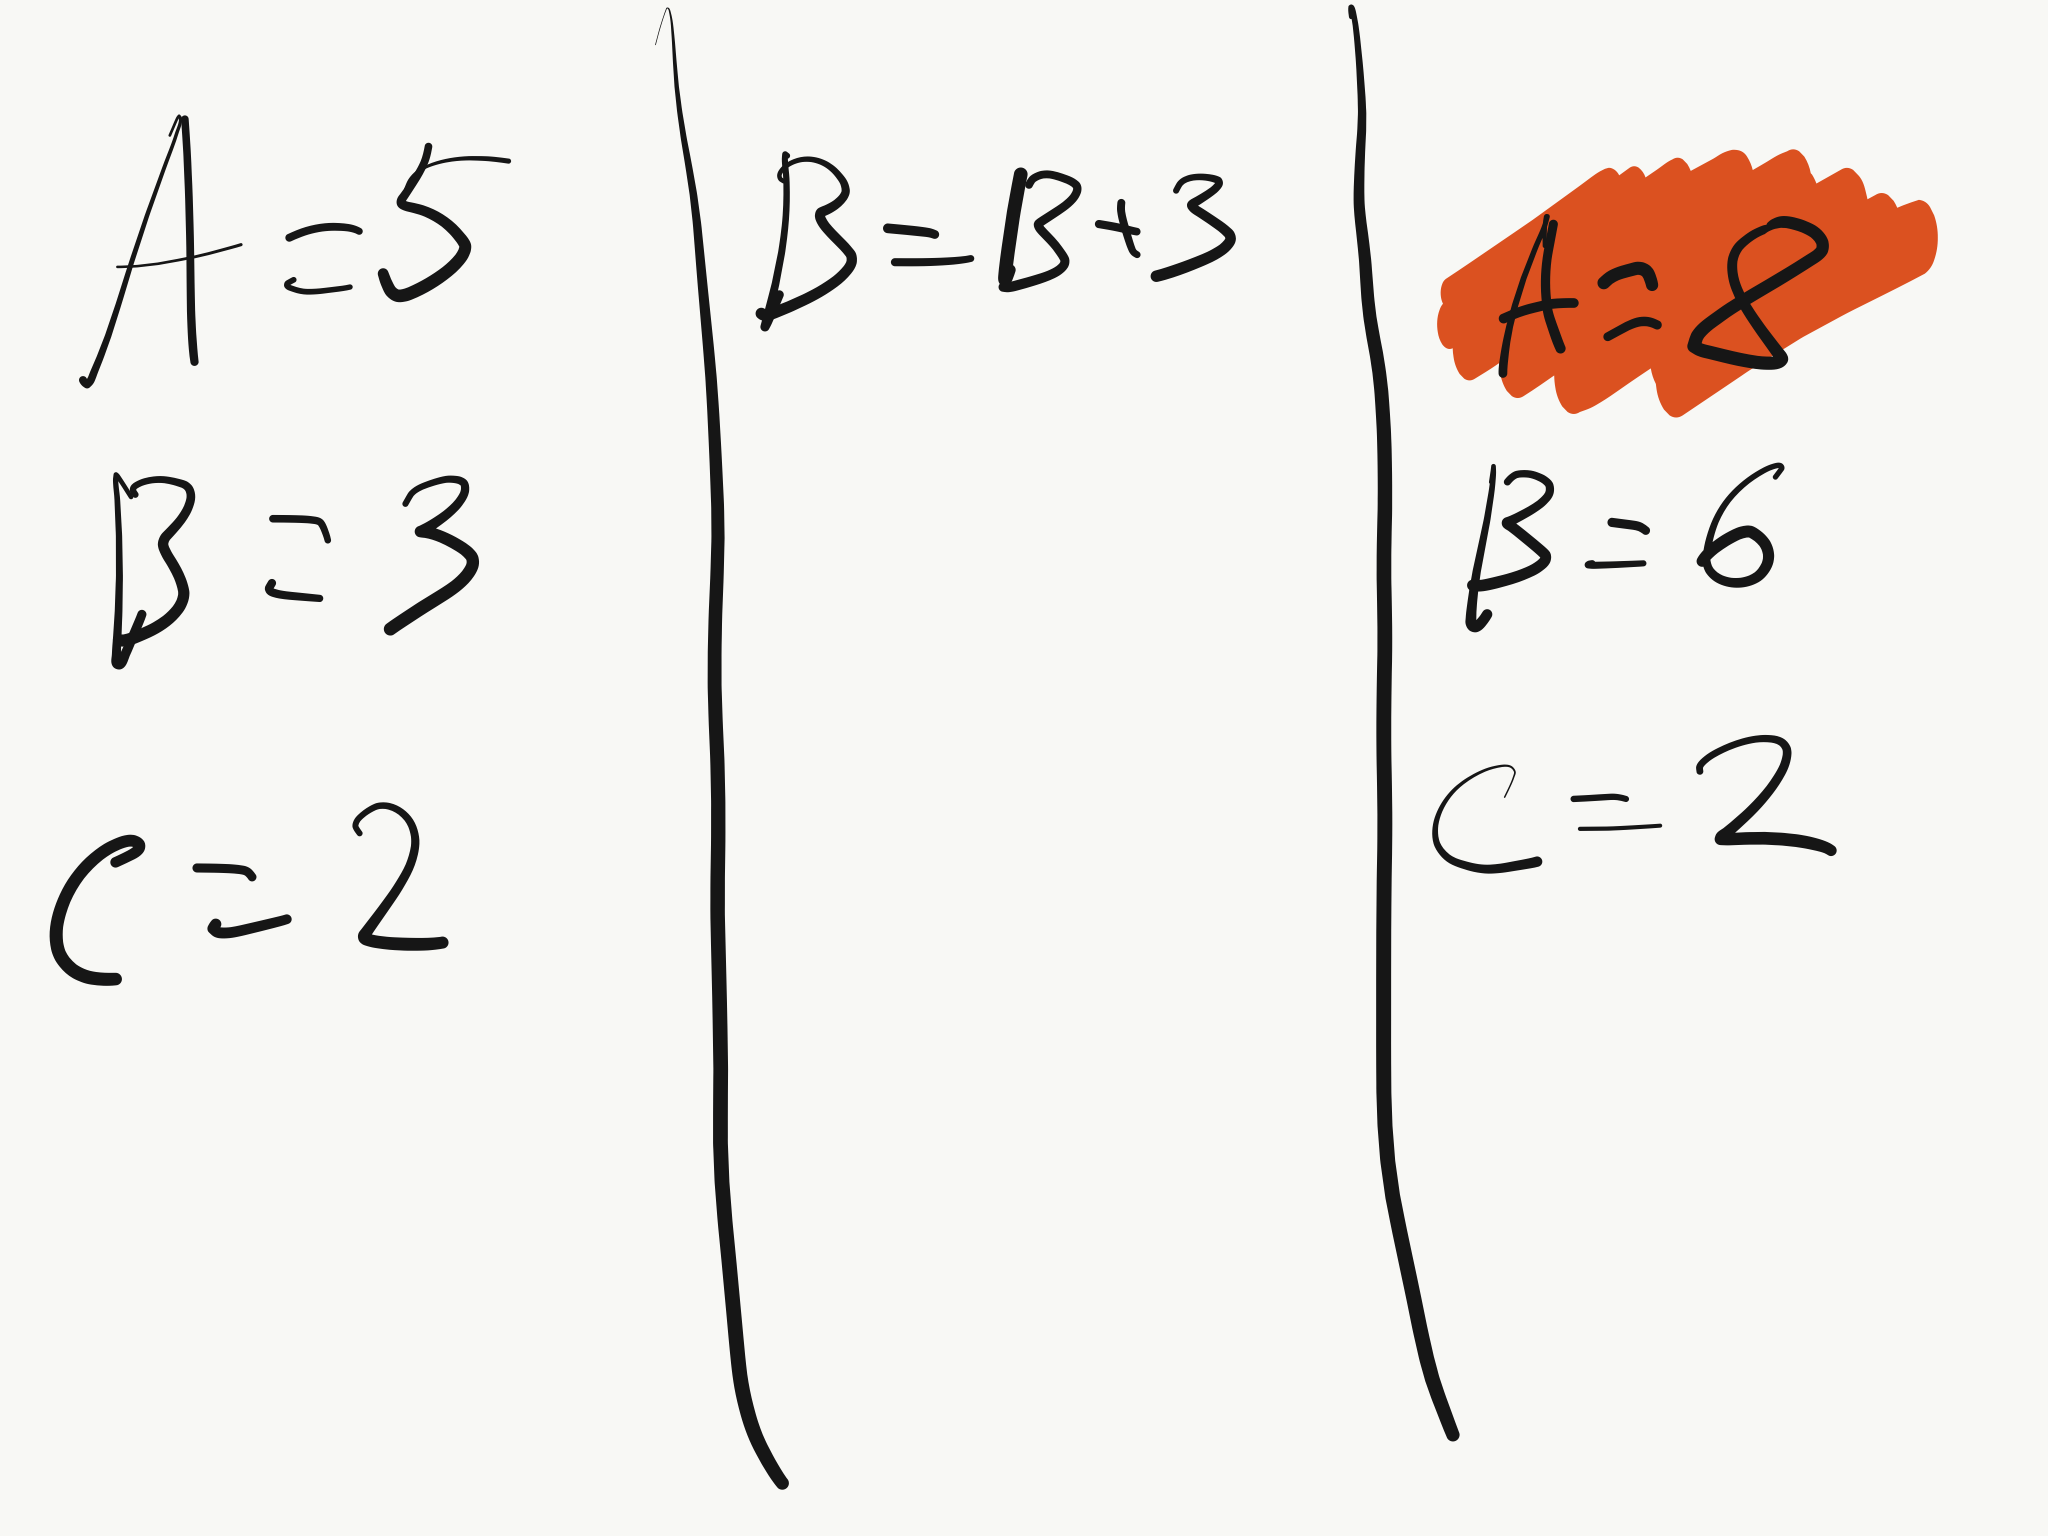 A = 5
B = 3
C = 2
B = B + 3
A = 8
B = 6
C = 2